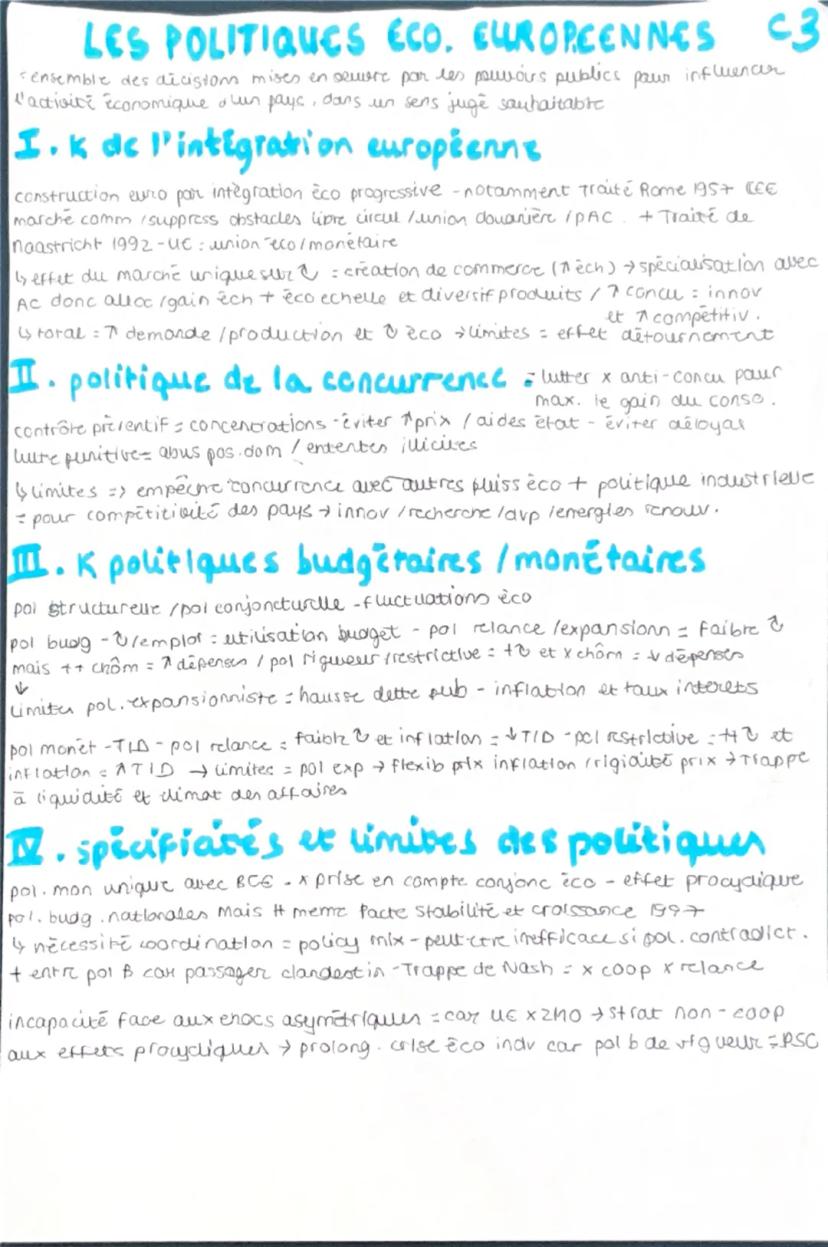 LES POLITIQUES ÉCO. EUROPÉENNES C3
= ensemble des décisions mises en oeuvre par les pouvoirs publics pour influencer
l'activité économique d'un pays, dans un sens jugé souhaitable
I. K de l'intégration européenne
construction euro par intègration éco progressive - notamment Traité Rome 1957 CEE
marché comm / suppress obstacles libre circul / union douanière / PAC. + Traité de
Maastricht 1992 - UE : union éco/monétaire
↳ effet du marché unique sur ↻ = création de commerce (↑ éch) → spécialisation avec
AC donc alloc / gain éch + éco echelle et diversif produits / ↑ concu = innov
et ↑ compétitiv.
↳ total = ↑ demande / production et ↻ éco → limites = effet détournement
II. politique de la concurrence = lutter x anti-concu pour
max. le gain du conso.
contrôle préventif = concentrations - éviter ↑ prix / aides état - éviter déloyal
lutte punitive = abus pos. dom / ententes illicites
↳ limites => empêche concurrence avec autres puiss éco + politique industrielle
= pour compétitivité des pays → innov / recherche / dvp / energies renouv.
III. K politiques budgétaires / monétaires
pol structurelle / pol conjoncturelle - fluctuations éco
pol budg - ↻/emploi = utilisation budget - pol relance / expansionn = faible ↻
mais ++ chôm = ↑ dépenses / pol rigueur / restrictive = +↻ et x chôm = ↓ dépenses
↓
Limites pol. expansionniste = hausse dette pub - inflation et taux interets
pol monét - TID - pol relance = faible ↻ et inflation = ↓ TID - pol restrictive = ++ ↻ et
inflation = ↑ TID → limites = pol exp → flexib prix inflation / rigidité prix → Trappe
à liquidité et climat des affaires
IV. spécificités et limites des politiques
pol. mon unique avec BCE - x prise en compte conjonc éco - effet procyclique
pol. budg. nationales mais # meme Pacte Stabilité et croissance 1997
↳ nécessité coordination = policy mix - peut etre inefficace si pol. contradict.
+ entre pol B car passager clandestin - Trappe de Nash = x coop x relance
incapacité face aux chocs asymétriques = car UE x ZMO → strat non-coop
aux effets procycliques → prolong. crise éco indv car pol b de rigueur = PSC